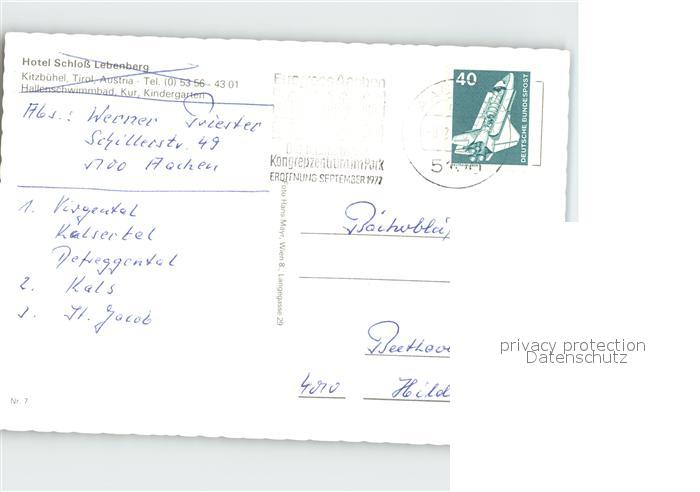 Hotel Schloß Lebenberg
Kitzbühel, Tirol, Austria - Tel. (0) 53 56 - 43 01
Hallenschwimmbad, Kur, Kindergarten
Abs.: Werner Triester
Schillerstr. 49
5100 Aachen
1. Virgental
Kalsertal
Defreggental
2. Kals
3. St. Jacob
Nr. 7
Foto Hans Mayr, Wien 8., Langegasse 29
Aachen
Kongreßzentrum im Park
ERÖFFNUNG SEPTEMBER 1977
40
DEUTSCHE BUNDESPOST
Beethov
4010 Hild
privacy protection
Datenschutz